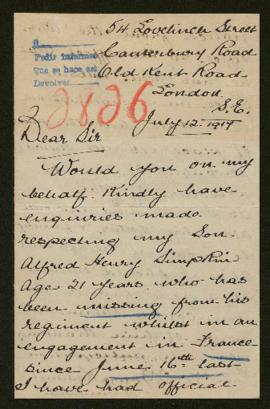 54 Lovelinch Street
Canterbury Road
Old Kent Road
London
S.E.
Pedir informes
Que se hace así
Devolver
2826
July 12-1917
Dear Sir
Would you on my
behalf Kindly have
enquiries made
respecting my Son
Alfred Henry Simpkin
Age 21 years who has
been missing from his
regiment whilst in an
engagement in France
since June 16th last
I have had official